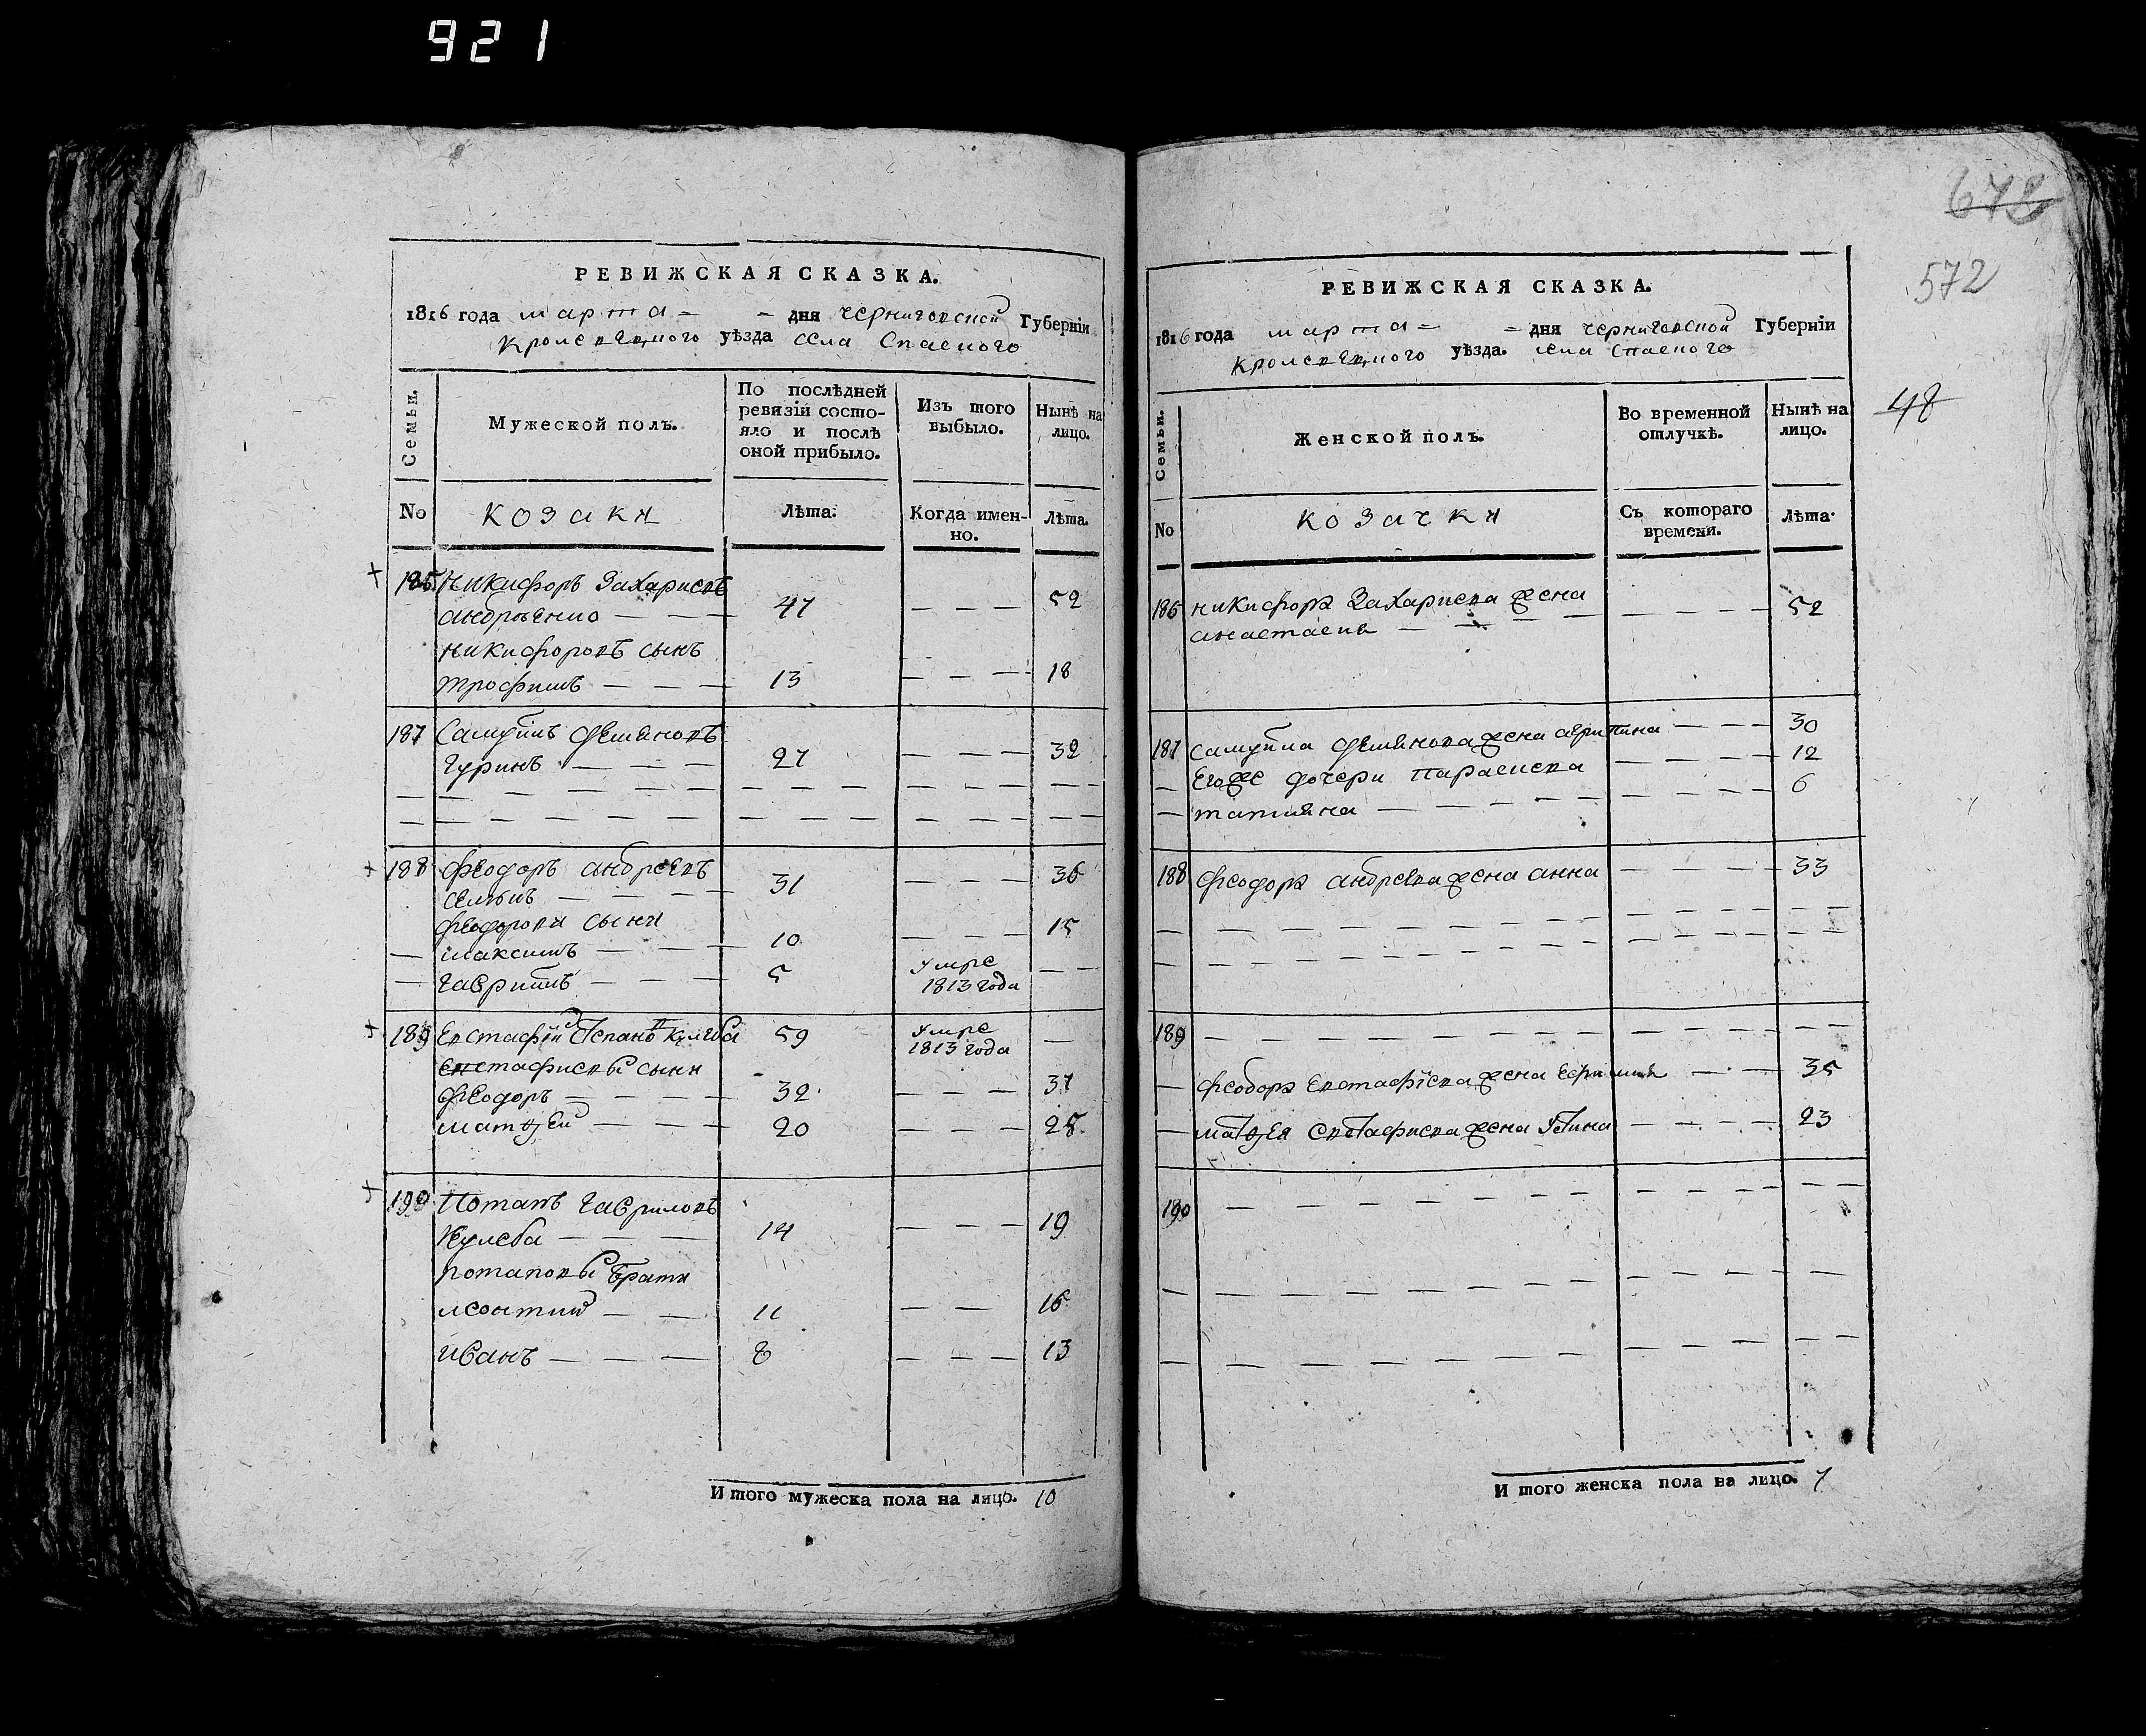 921
РЕВИЖСКАЯ СКАЗКА.
1816 года марта = = дня Черниговской Губерніи
Кролевецкого уѣзда села Спаского
Семьи.
Мужеской полъ.
По послѣдней ревизіи состояло и послѣ оной прибыло.
Изъ того выбыло.
Нынѣ на лицо.
No
козаки
Лѣта.
Когда именно.
Лѣта.
Никифоръ Захариевъ
андрѣенко — — 47 — — — 52
никифоровъ сынъ
трофимъ — — — 13 — — — 18
187 Самуйлъ демяновъ
Гуринъ — — — 27 — — — 32
188 феодоръ андреевъ
31 — — — 36
феодорови сыни
— максимъ — — — 10 — — — 15
— гаврилъ — — — 5 умре 1813 года — —
189 Евстафій Степановъ Кулеба 59 умре 1813 года —
евстафиевы сыни
феодоръ — — — — 32 — — — 37
матѳей — — — 20 — — — 25
190 Потапъ гавриловъ
Кулеба — — — 14 — — — 19
потаповы братя
леонтий — — 11 — — 16
иванъ — — — 8 — — — 13
И того мужеска пола на лицо. 10
672
572
48
РЕВИЖСКАЯ СКАЗКА.
1816 года марта = = дня черниговской Губерніи
Кролевецкого уѣзда. села Спаского
Семьи.
Женской полъ.
Во временной отлучкѣ.
Нынѣ на лицо.
No
козачки
Съ котораго времени.
Лѣта.
186 никифора Захариева жена
анастасия — — — — — — — — 52
187 самуйла демянова жена агрипина — — — 30
— Егоже дочери параскева — — — — 12
— татияна — — — — — — — — — 6
188 феодора андреева жена анна — — — — 33
189 — — — — — — — —
— феодора Евстафіева жена Ефимия — — 35
— матѳея Евстафиева жена Устина — — — — 23
190 — — — — — — — —
И того женска пола на лицо. 7